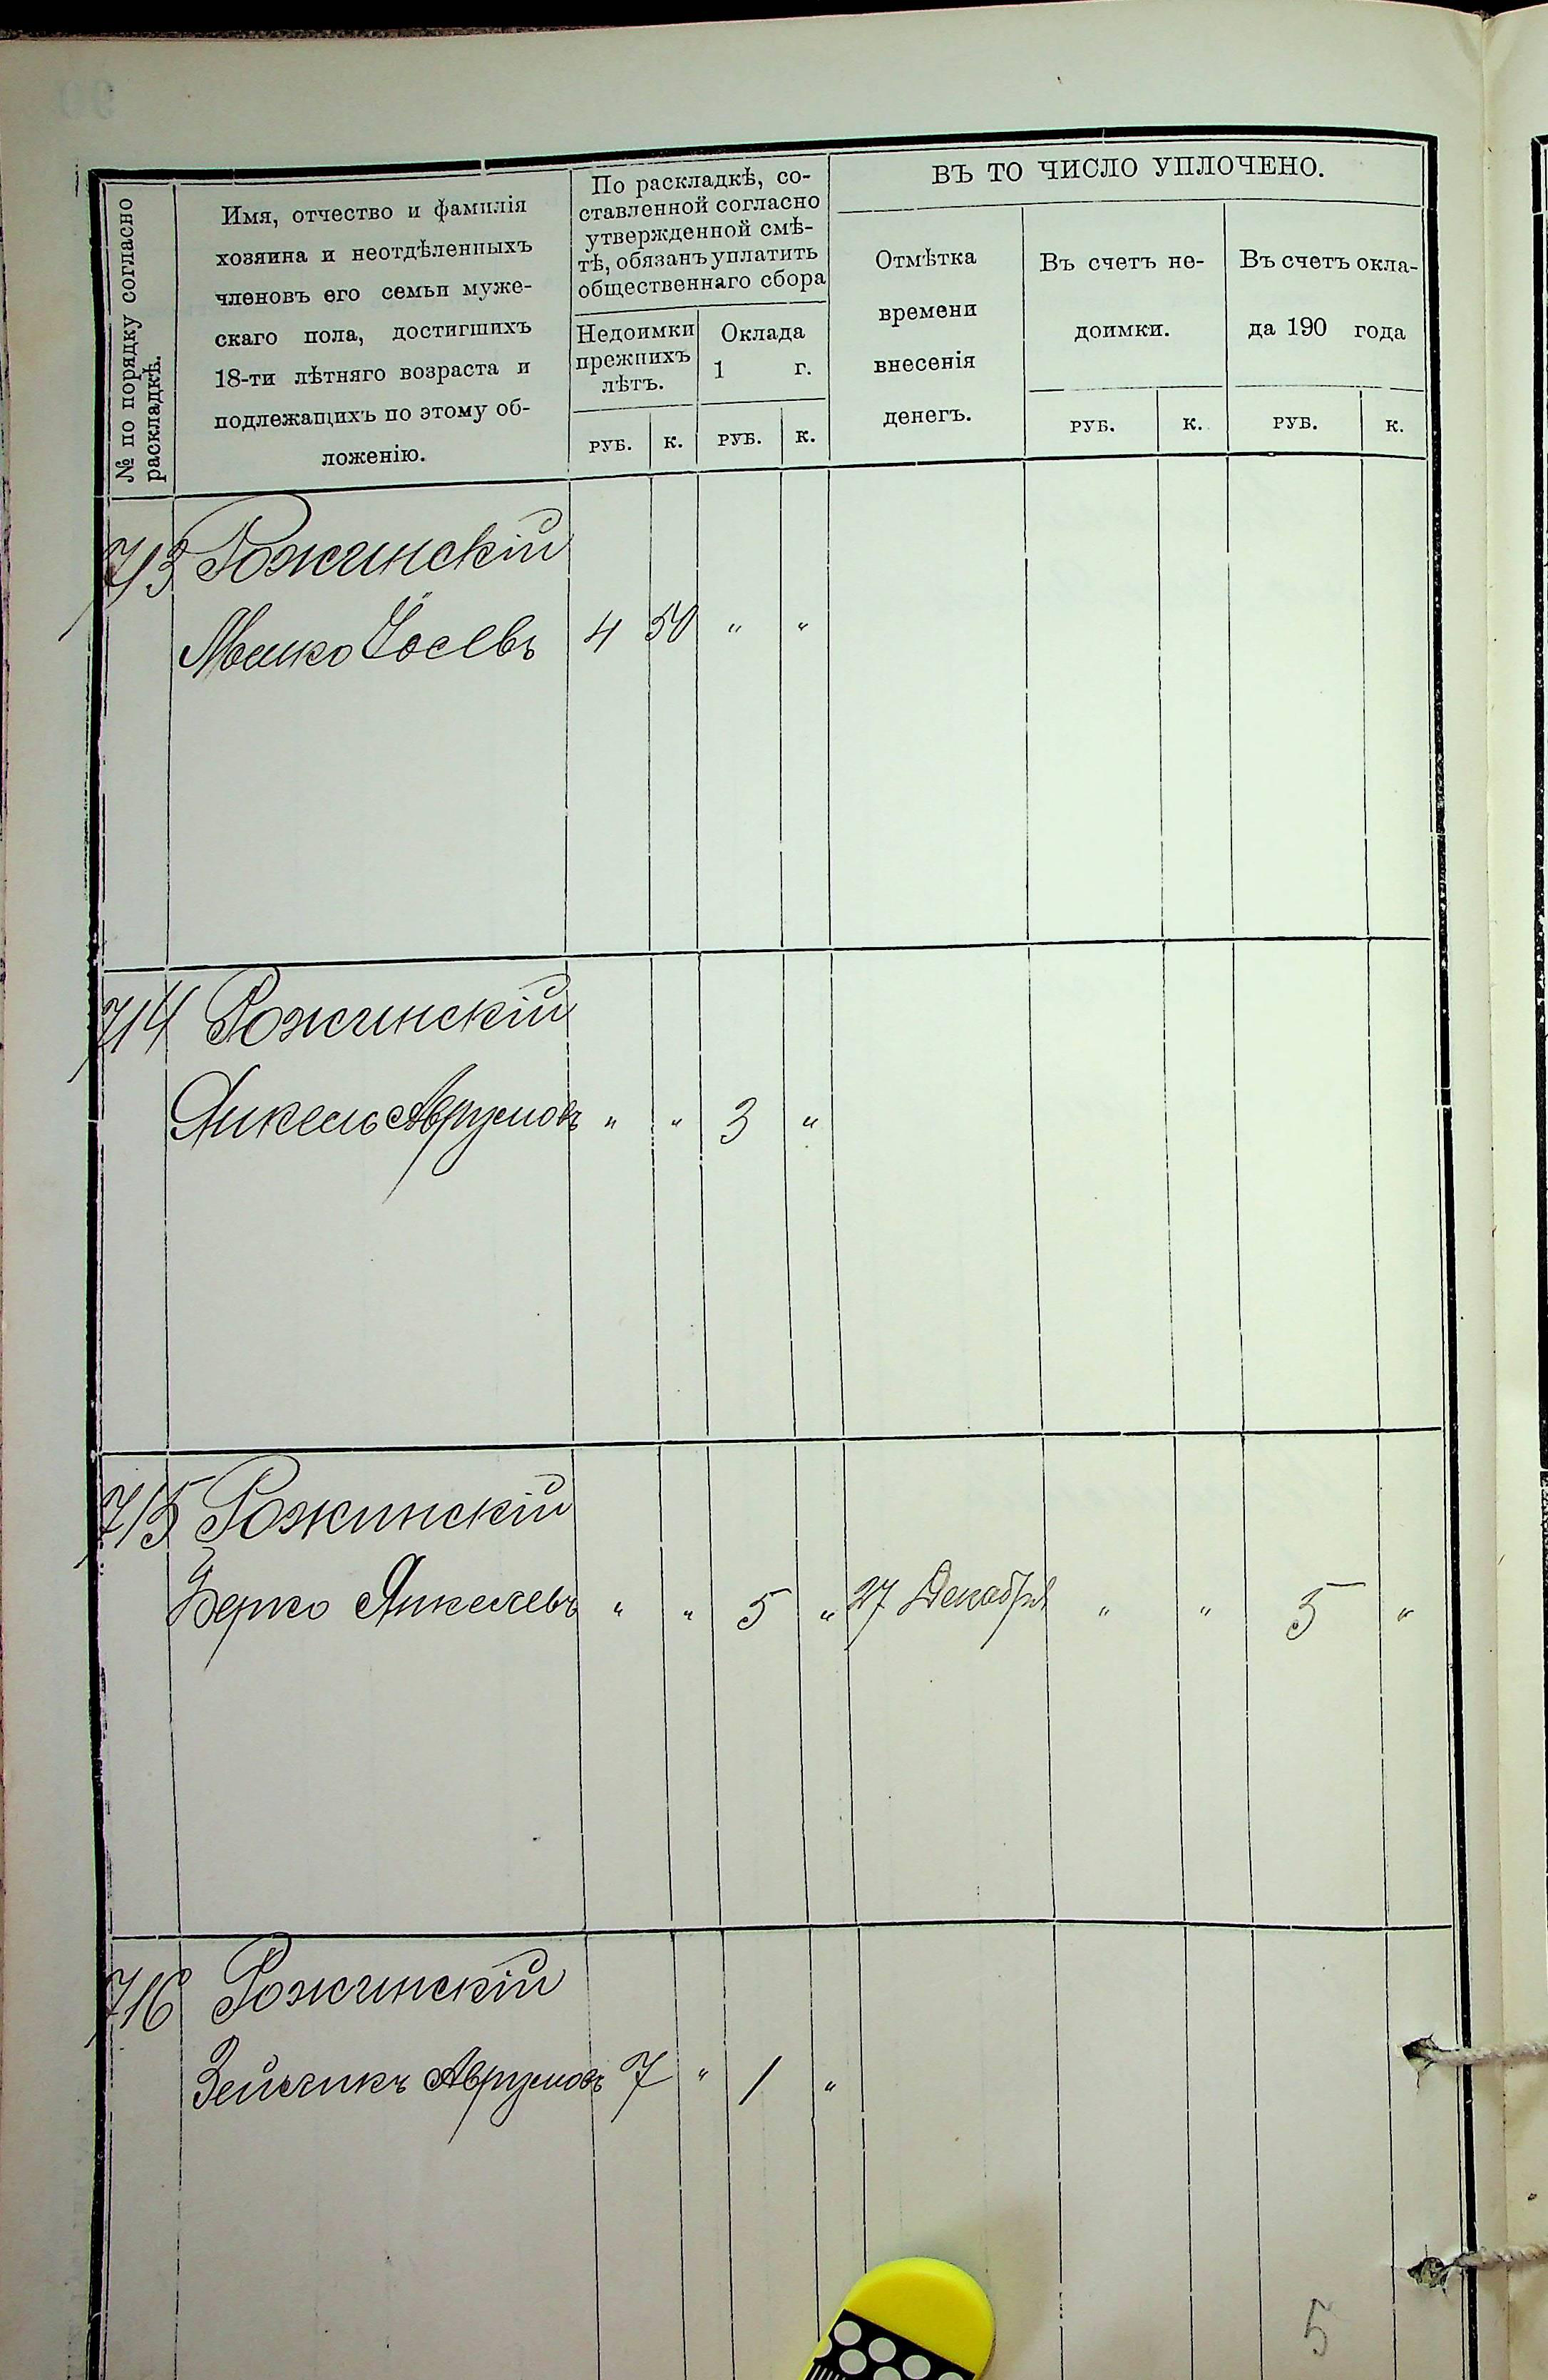 № по порядку согласно
раскладкѣ.
Имя, отчество и фамилія
хозяина и неотдѣленныхъ
членовъ его семьи муже-
скаго пола, достигшихъ
18-ти лѣтняго возраста и
подлежащихъ по этому об-
ложенію.
По раскладкѣ, со-
ставленной согласно
утвержденной смѣ-
тѣ, обязанъ уплатить
общественнаго сбора
Недоимки
прежнихъ
лѣтъ.
Оклада
1 г.
РУБ. К. РУБ. К.
ВЪ ТО ЧИСЛО УПЛОЧЕНО.
Отмѣтка
времени
внесенія
денегъ.
Въ счетъ не-
доимки.
Въ счетъ окла-
да 190 года
РУБ. К. РУБ. К.
713 Рожинскій
Іосевъ 4 50 " "
714 Рожинскій
Янкель Аврумовъ " " 3 "
715 Рожинскій
Берко Янкелевъ " " 5 " 27 Декабря " " 5 "
716 Рожинскій
Зейликъ Аврумовъ 7 " 1 "
5